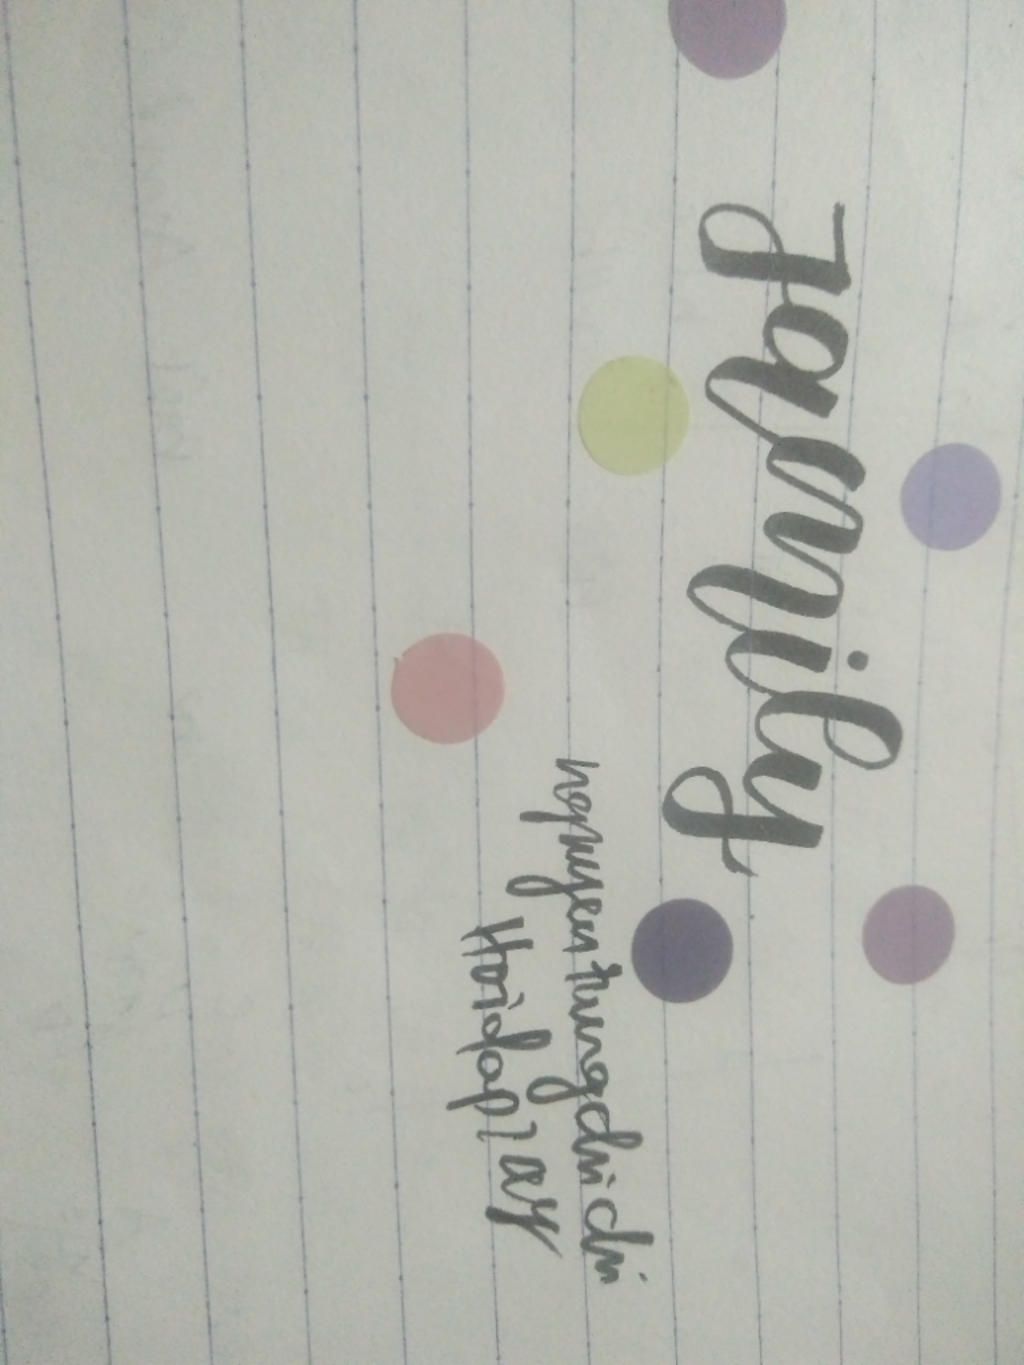 Family
nguyentrungchichi
Hoidap247